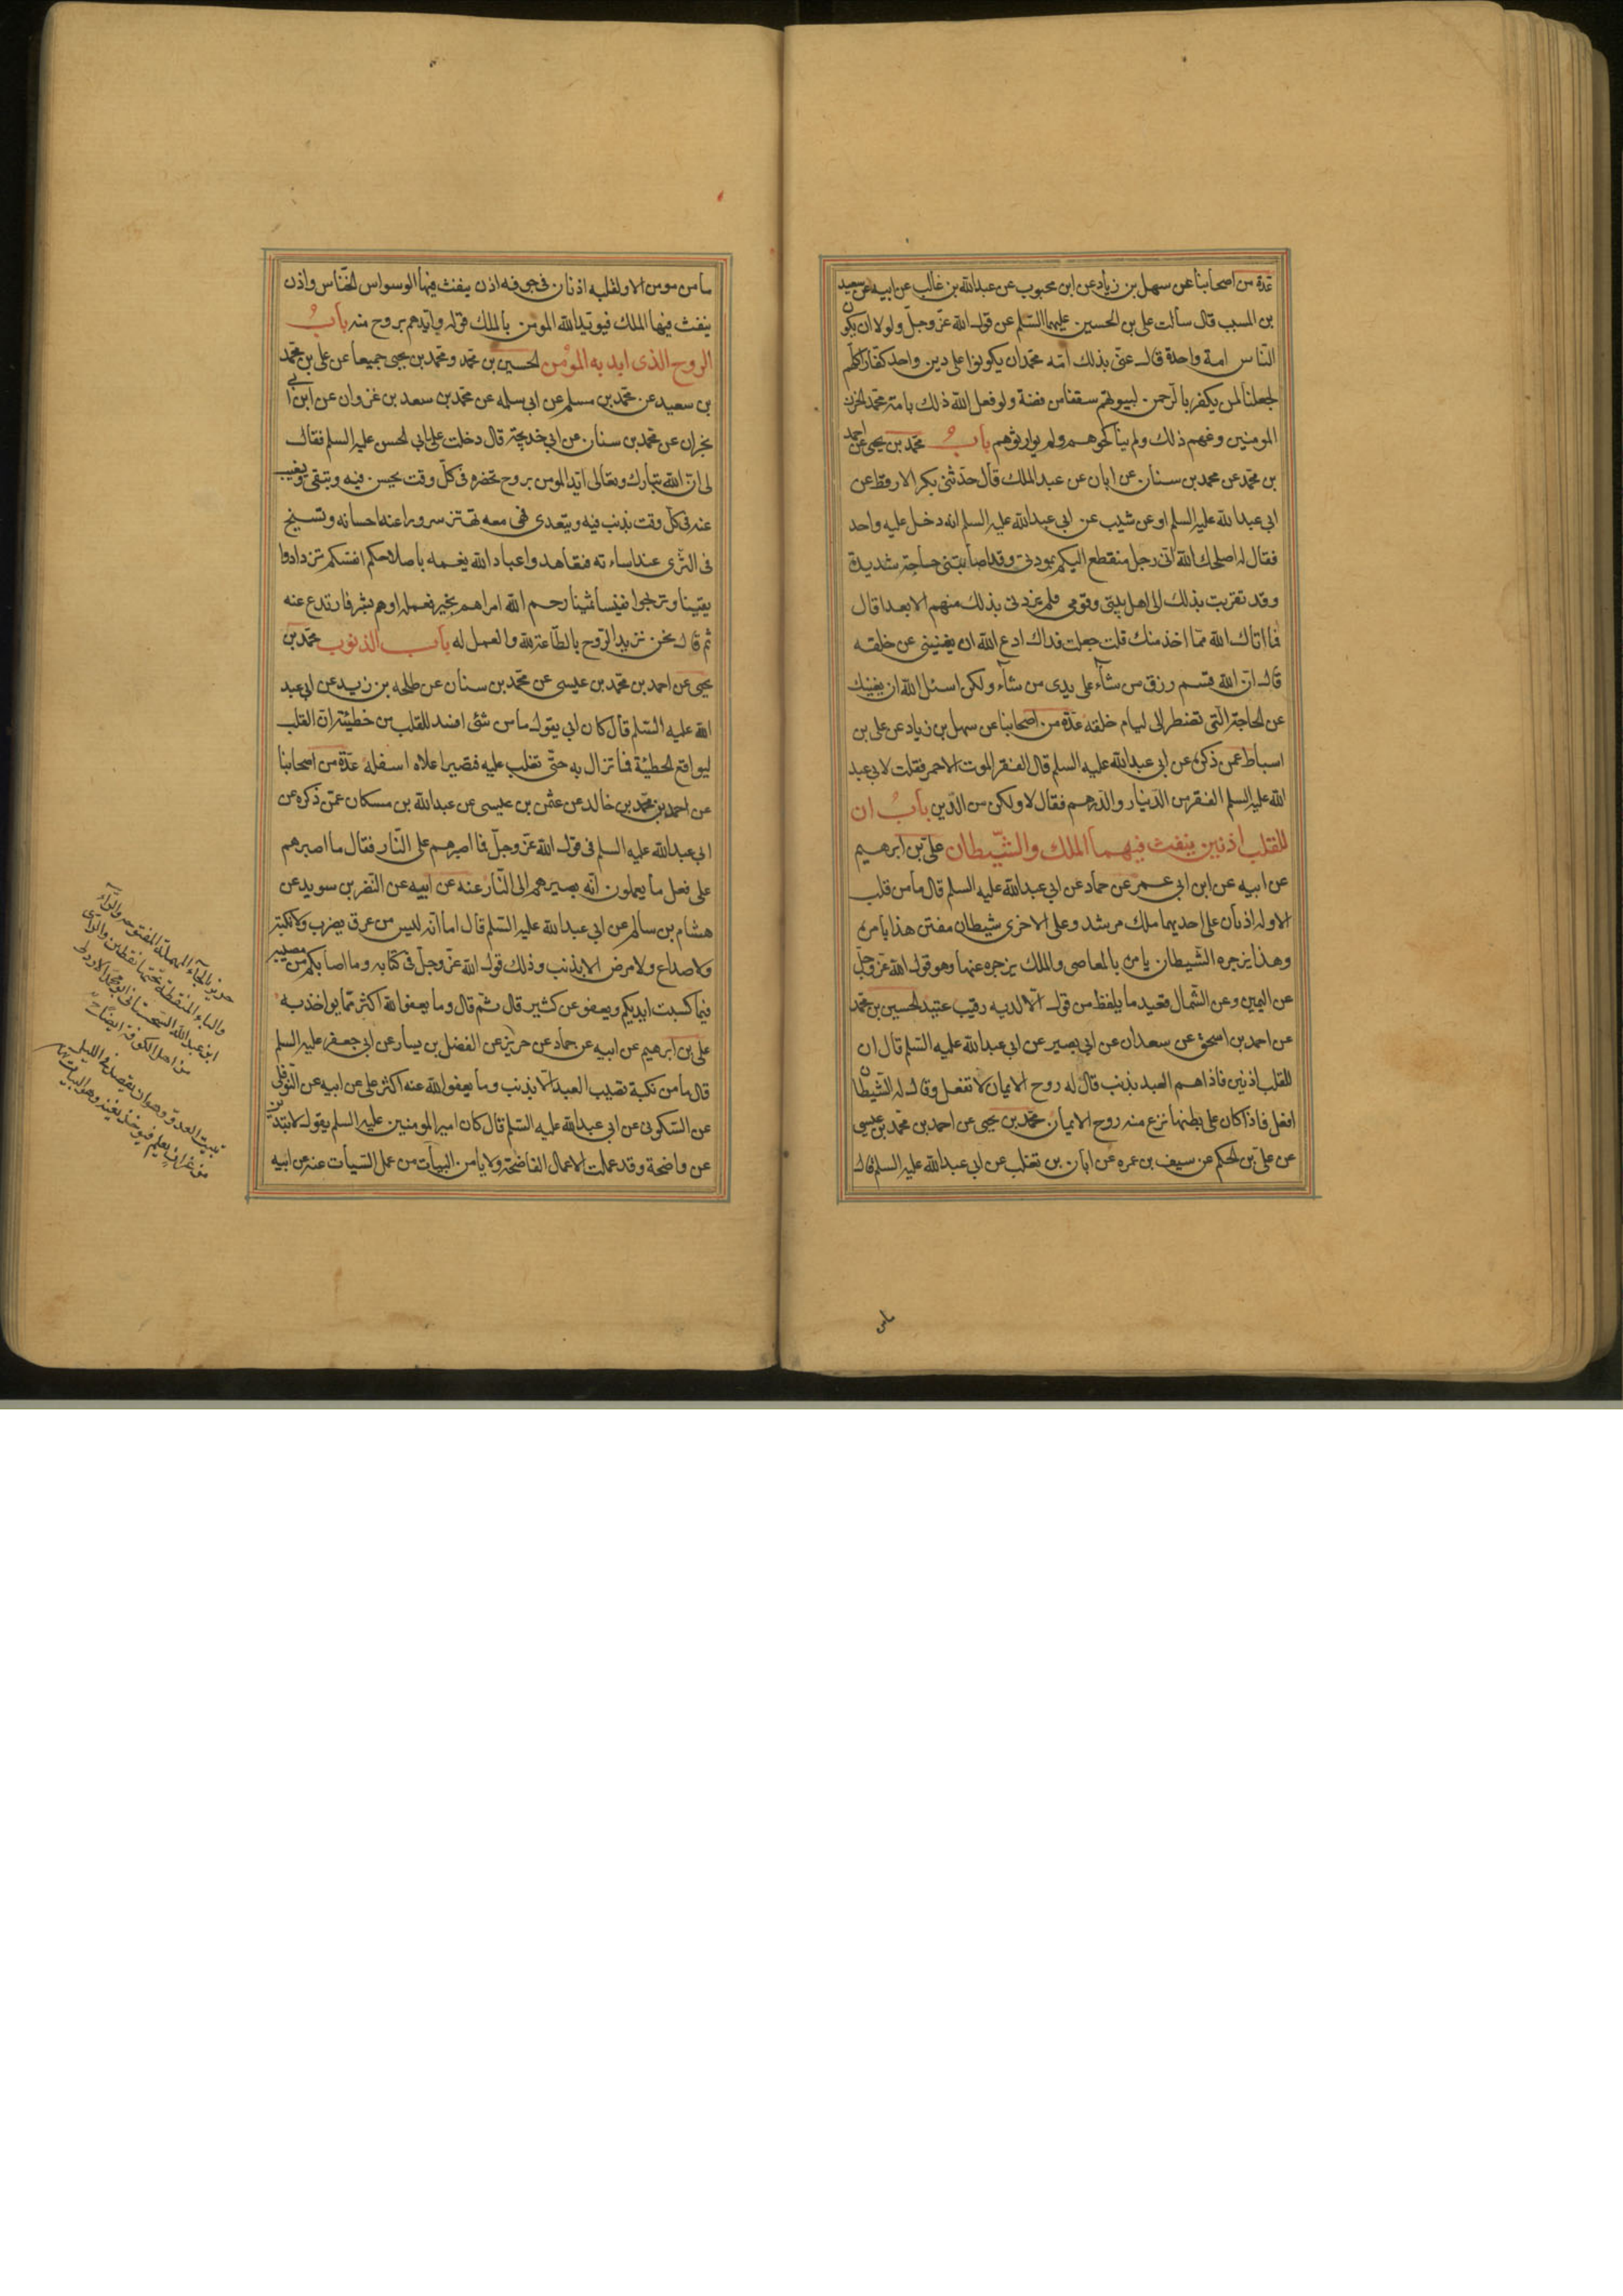 عدة من اصحابنا عن سهل بن زياد عن ابن محبوب عن عبدالله بن غالب عن ابيه عن سعيد
بن المسيب قال سالت على بن الحسين عليهما السّلم عن قول الله عزّ وجلّ ولولا ان يكون
النّاس امة واحدة قال عنى بذلك امّه محمد ان يكونوا على دين واحد كفّارا كلّهم
لجعلنا لمن يكفر بالرحمن لبيوتهم سقفا من فضة ولو فعل الله ذلك بامة محمد لحزن
المومنين وغمهم ذلك ولم يناكحوهم ولم يوارثوهم باب محمّد بن يحيى عن احمد
بن محمّد عن محمد بن سنان عن ابان عن عبد الملك قال حدّثنى بكر الارقط عن
ابى عبدالله عليه السلم او عن شبيب عن ابى عبدالله عليه السلم انه دخل عليه واحد
فقال له اصلحك الله انّى رجل منقطع اليكم بمودتى وقد اصابتنى حاجة شديدة
وقد تقربت بذلك الى اهل بيتى وقومى فلم يزدنى بذلك منهم الا بعدا قال
فما اتاك الله ممّا اخذ منك قلت جعلت فداك ادع الله ان يغنينى عن خلقه
قال انّ الله قسم رزق من شآء على يدى من شآء ولكن اسئل الله ان يغنيك
عن الحاجة الّتى تضطر الى ليام خلقه عدّة من اصحابنا عن سهل بن زياد عن على بن
اسباط عمن ذكره عن ابى عبدالله عليه السلم قال الفقر الموت الاحمر فقلت لابى عبد
الله عليه السلم الفقر من الدّينار والدّرهم فقال لا ولكن من الدّين باب ان
للقلب اذنين ينفث فيهما الملك والشّيطان علىّ بن ابرهيم
عن ابيه عن ابن ابى عمير عن حماد عن ابى عبدالله عليه السلم قال ما من قلب
الا وله اذنان على احديهما ملك مرشد وعلى الاخرى شيطان مفتن هذا يامره
وهذا يزجره الشّيطان يامره بالمعاصى والملك يزجره عنها وهو قول الله عزّ وجلّ
عن اليمين وعن الشّمال قعيد ما يلفظ من قول الّا لديه رقيب عتيد الحسين بن محمّد
عن احمد بن اسحق عن سعدان عن ابى بصير عن ابى عبدالله عليه السّلم قال ان
للقلب اذنين فاذا هم العبد بذنب قال له روح الايمان لا تفعل وقال له الشّيطان
افعل فاذا كان على بطنها نزع منه روح الايمان محمّد بن يحيى عن احمد بن محمّد بن عيسى
عن علىّ بن الحكم عن سيف بن عمره عن ابان بن تغلب عن ابى عبدالله عليه السلم قال
ما من
ما من مومن الا ولقلبه اذنان فى جوفه اذن ينفث فيها الوسواس الخنّاس واذن
ينفث فيها الملك فيويّد الله المومن بالملك قوله وايّدهم بروح منه باب
الروح الذى ايد به المؤمن الحسين بن محمّد ومحمّد بن يحيى جميعا عن على بن محمّد
بن سعيد عن محمّد بن مسلم عن ابى سلمه عن محمّد بن سعد بن غزوان عن ابن ابى
نجران عن محمّد بن سنان عن ابى خديجة قال دخلت على ابى الحسن عليه السلم فقال
لى انّ الله تبارك وتعالى ايّد المومن بروح تحضره فى كلّ وقت يحسن فيه ويتقى وتغيب
عنه فى كلّ وقت يذنب فيه ويتعدى فهى معه تهتز سرورا عند احسانه وتسيخ
فى الثّرى عند اساءته فتعاهدوا عباد الله نعمه باصلاحكم انفسكم تزدادوا
يقينا وتربحوا نفيسا ثمينا رحم الله امرا هم بخير فعمله او هم بشر فارتدع عنه
ثم قال نحن نزيد الرّوح بالطّاعة لله والعمل له باب الذنوب محمّد بن
يحيى عن احمد بن محمّد بن عيسى عن محمّد بن سنان عن طلحه بن زيد عن ابى عبد
الله عليه السّلم قال كان ابى يقول ما من شئ افسد للقلب من خطيئة ان القلب
ليواقع الخطيئة فما تزال به حتّى تغلب عليه فتصير اعلاه اسفله عدّة من اصحابنا
عن احمد بن محمّد بن خالد عن عثمن بن عيسى عن عبدالله بن مسكان عمّن ذكره عن
ابى عبدالله عليه السلم فى قول الله عزّ وجلّ فما اصبرهم على النّار فقال ما اصبرهم
على فعل ما يعملون انّه يصيرهم الى النّار عنه عن ابيه عن النّضر بن سويد عن
هشام بن سالم عن ابى عبدالله عليه السّلم قال اما انّه ليس من عرق يضرب ولا نكبة
ولا صداع ولا مرض الا بذنب وذلك قول الله عزّ وجلّ فى كتابه وما اصابكم من مصيبة
فبما كسبت ايديكم ويعفو عن كثير قال ثمّ قال وما يعفو الله اكثر ممّا يواخذ به
على بن ابرهيم عن ابيه عن حماد عن حريز عن الفضل بن يسار عن ابى جعفر عليه السلم
قال ما من نكبة تصيب العبد الّا بذنب وما يعفو الله عنه اكثر على عن ابيه عن النّوفلى
عن السّكونى عن ابى عبدالله عليه السّلم قال كان امير المومنين عليه السلم يقول لا تبدين
عن واضحة وقد عملت الاعمال الفاضحة ولا يامن البيات من عمل السّيأت عنه عن ابيه
حريز بالحآء المهملة المفتوحه والرّآء
والياء المنقطة تحتها نقطين والزاى
ابو عبدالله السجستانى ابو محمّد الازدى
من اهل الكوفة
تبييت العدوّ وهو ان يقصد فى الليل
من غير ان يعلم فيوخذ بغتة وهو البيات